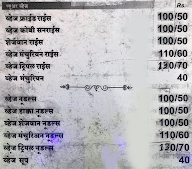 Rs.
व्हेज फ्राईड राईस 100/50
व्हेज कोबी सनराईस 100/50
शेजवान राईस 100/50
व्हेज मंचुरियन राईस 110/60
व्हेज ट्रिपल राईस 130/70
व्हेज मंचुरियन 40
व्हेज नुडल्स 100/50
व्हेज हाक्का नुडल्स 100/50
व्हेज शेजवान नुडल्स 100/50
व्हेज मंचुरिअन नुडल्स 110/60
व्हेज ट्रिपल नुडल्स 130/70
व्हेज सूप 40